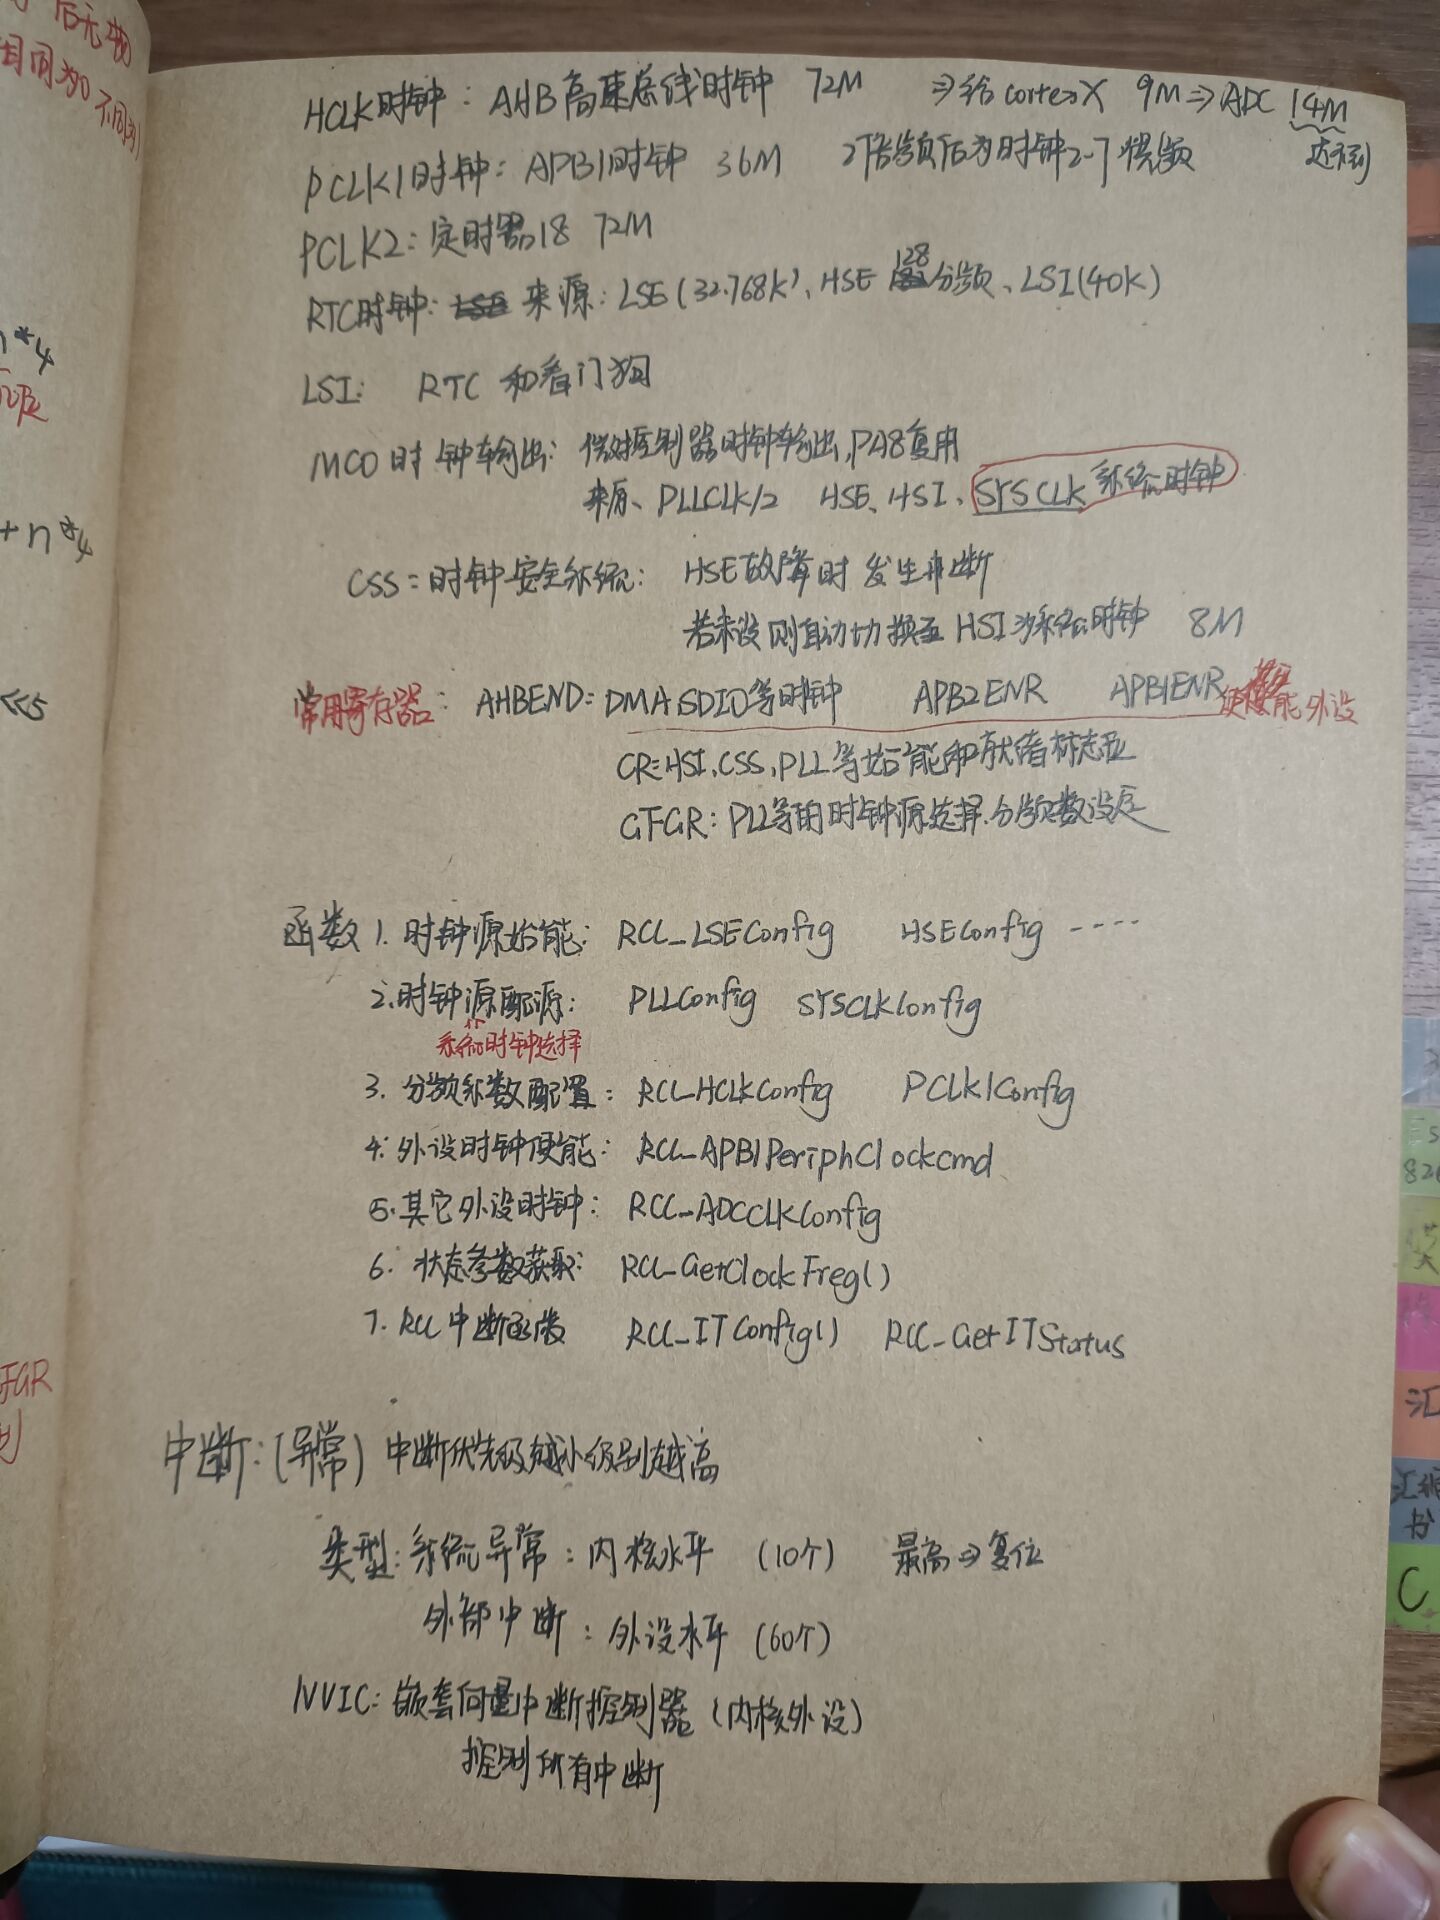 后无
相同为0 不同为1
HCLK时钟：AHB高速总线时钟 72M ⇒给cortexX 9M⇒ADC 14M
达不到
PCLK1时钟：APB1时钟 36M 2倍频后为时钟2-7 频
PCLK2：定时器18 72M
RTC时钟：来源：LSE(32.768K)、HSE 128分频、LSI(40K)
n*4
LSI： RTC 和看门狗
MCO时钟输出：微控制器时钟输出,PA8复用
来原、PLLCLK/2 HSE、HSI、SYSCLK系统时钟
+n*4
CSS=时钟安全系统： HSE故障时 发生中断
若未设则自动切换至HSI为系统时钟 8M
<<5
常用寄存器：AHBEND=DMA SDIO等时钟 APB2ENR APB1ENR 使能外设
CR=HSI、CSS,PLL等始能和就绪标志位
GFGR：PLL等的时钟源选择.分频数设定
函数1.时钟源始能：RCC_LSEConfig HSEConfig ----
2.时钟源配源： PLLConfig SYSCLKConfig
系统时钟选择
3.分频系数配置：RCC_HCLKConfig PCLK1Config
4.外设时钟使能：RCC_APB1PeriphClockcmd
5.其它外设时钟：RCC_ADCCLKConfig
6.状态参数获取：RCC_GetClockFreq()
7.RCC中断函数 RCC_ITConfig() RCC_GetITStatus
FGR
中断：(异常) 中断优先级越小级别越高
类型：系统异常：内核水平 (10个) 最高⇒复位
外部中断：外设水平 (60个)
NVIC：嵌套向量中断控制器(内核外设)
控制所有中断
汇
汇编
书
C